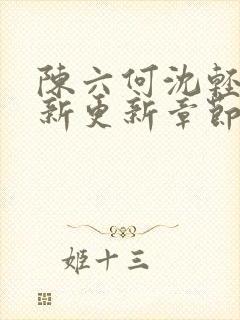 陳六何沈輕
新更新章節
姬十三